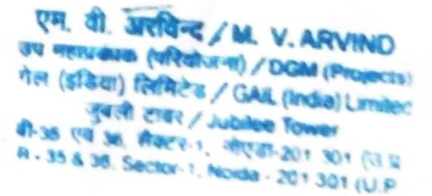 एम. वी. अरविन्द / M. V. ARVIND
उप महाप्रबन्धक (परियोजना) / DGM (Projects)
गेल (इंडिया) लिमिटेड / GAIL (India) Limited
जुबली टावर / Jubilee Tower
बी-35 एवं 36, सैक्टर-1, नोएडा-201 301 (उ प्र
B - 35 & 36, Sector-1, Noida - 201 301 (U.P